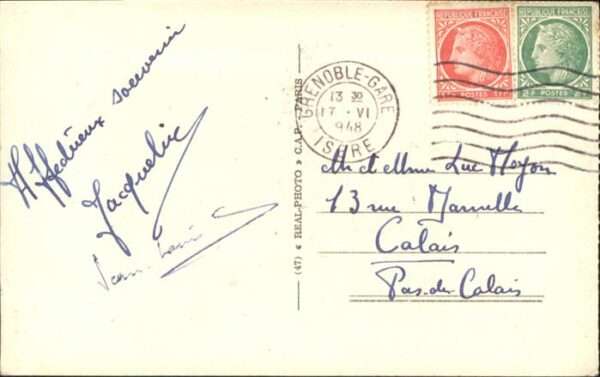 Affectueux souvenir
Jacqueline
Jean-Louis
(47) « REAL-PHOTO » C.A.P. - PARIS
GRENOBLE-GARE
13 30
17 - VI
1948
ISERE
REPUBLIQUE FRANCAISE
POSTES
REPUBLIQUE FRANCAISE
2F POSTES 2F
M et Mme Luc
13 rue
Calais
Pas-de-Calais